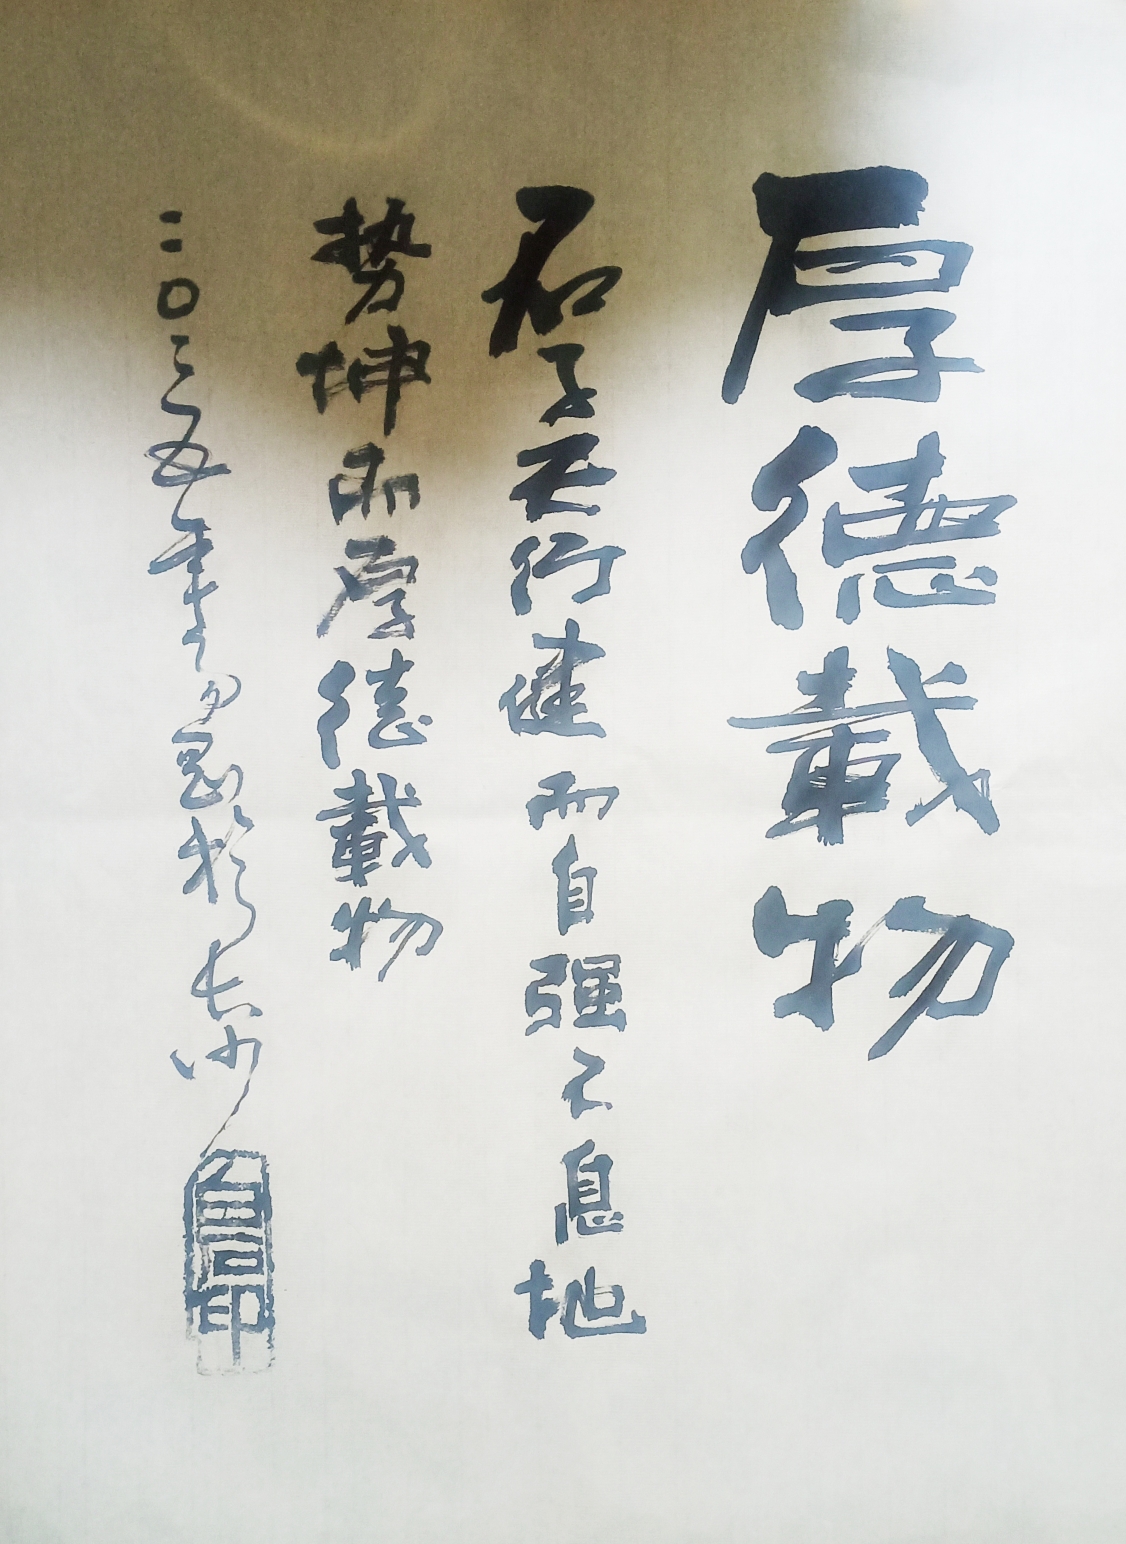 厚德載物
君子天行健而自强不息地
势坤而厚德載物
二〇二五年
於长沙
印